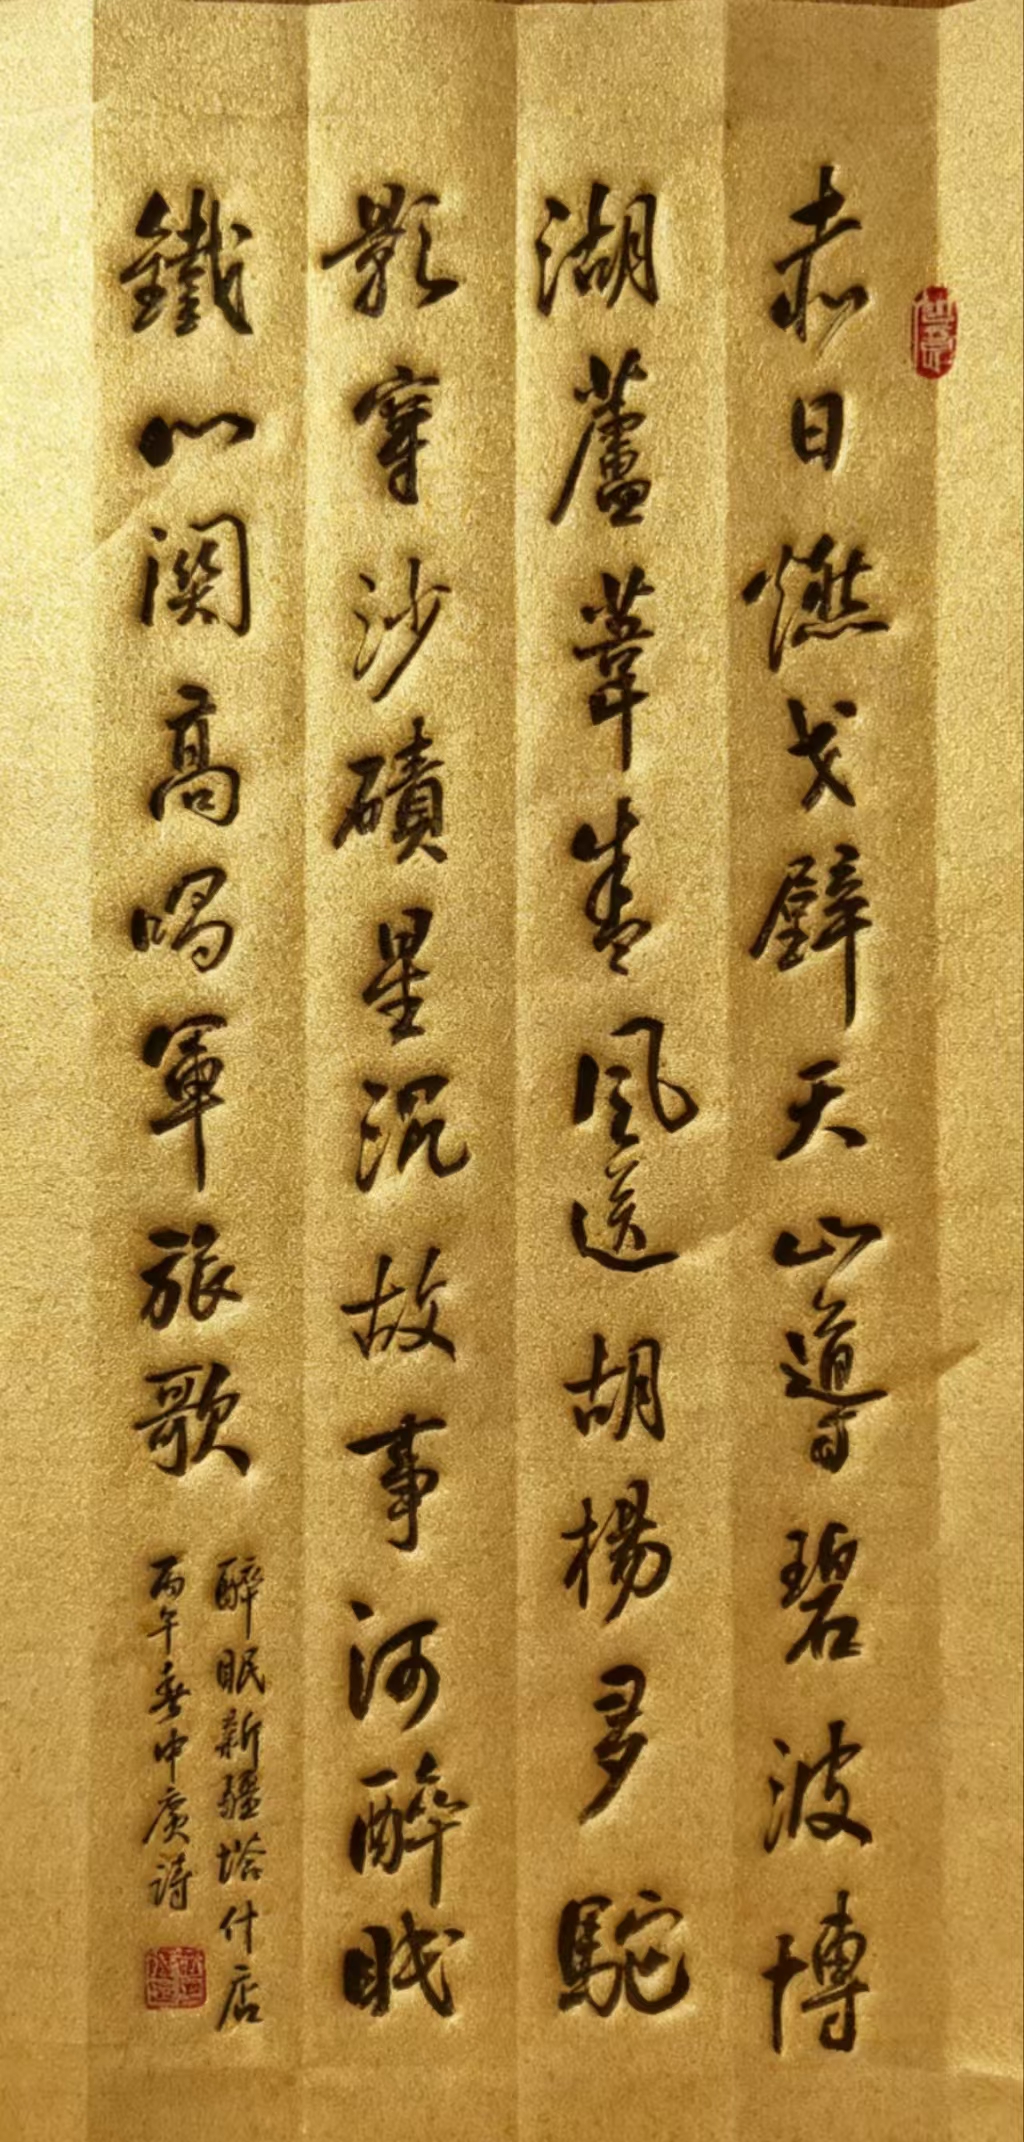 赤日燃戈壁天山導碧波博
湖蘆葦風送胡楊多駝
影穿沙磧星沉故事河醉眠
鐵門關高唱軍旅歌
醉眠新疆塔什店
丙午春中廣詩